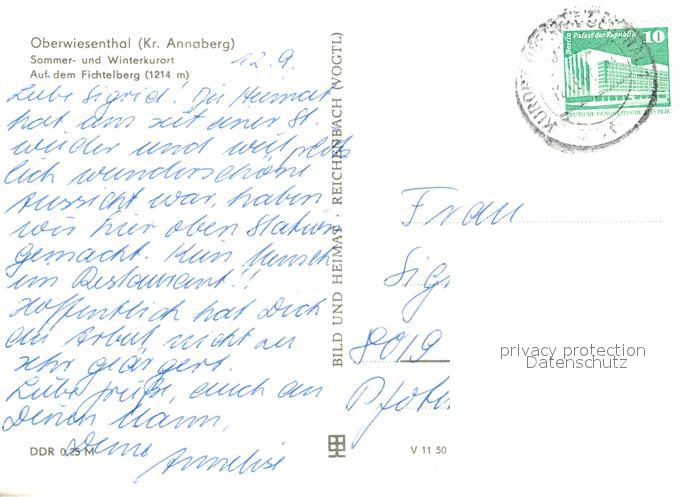 Oberwiesenthal (Kr. Annaberg)
Sommer- und Winterkurort
Auf dem Fichtelberg (1214 m)
12.9.
Liebe Sigrid! Die Heimat
hat uns seit einer St.
wieder und weil plötz
lich wunderschöne
Aussicht war, haben
wir hier oben Station
gemacht. Kein Mensch
im Restaurant!!
Hoffentlich hat Dich
die Arbeit nicht zu
sehr geärgert.
Liebe Grüße, auch an
Deinen Mann,
Deine
Annelise
DDR 0,25 M
BILD UND HEIMAT · REICHENBACH (VOGTL)
V 11 50
Berlin Palast der Republik 10
DEUTSCHE DEMOKRATISCHE REPUBLIK
KURORT
Frau
Sig
8019
privacy protection
Datenschutz